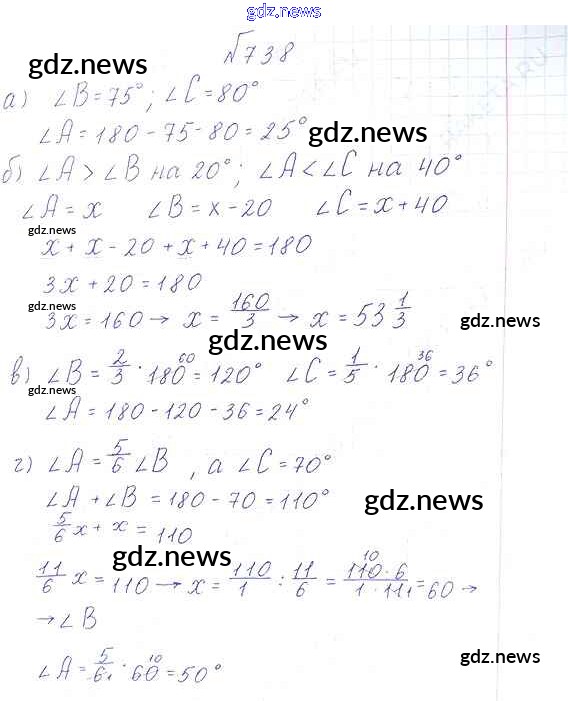 gdz.news
№738
gdz.news
а) ∠B=75°; ∠C=80°
∠A=180-75-80=25° gdz.news
б) ∠A>∠B на 20°; ∠A<∠C на 40°
∠A=x ∠B=x-20 ∠C=x+40
gdz.news
x+x-20+x+40=180
3x+20=180
gdz.news
3x=160 → x=160/3 → x=53 1/3
gdz.news
в) ∠B=2/3·180 60=120° ∠C=1/5·180 36=36°
gdz.news
∠A=180-120-36=24°
г) ∠A=5/6∠B, а ∠C=70°
∠A+∠B=180-70=110°
gdz.news
5/6x+x=110
gdz.news
11/6x=110 → x=110/1:11/6=110 10·6/1·11 1=60 →
→ ∠B
gdz.news
∠A=5/6 1·60 10=50°